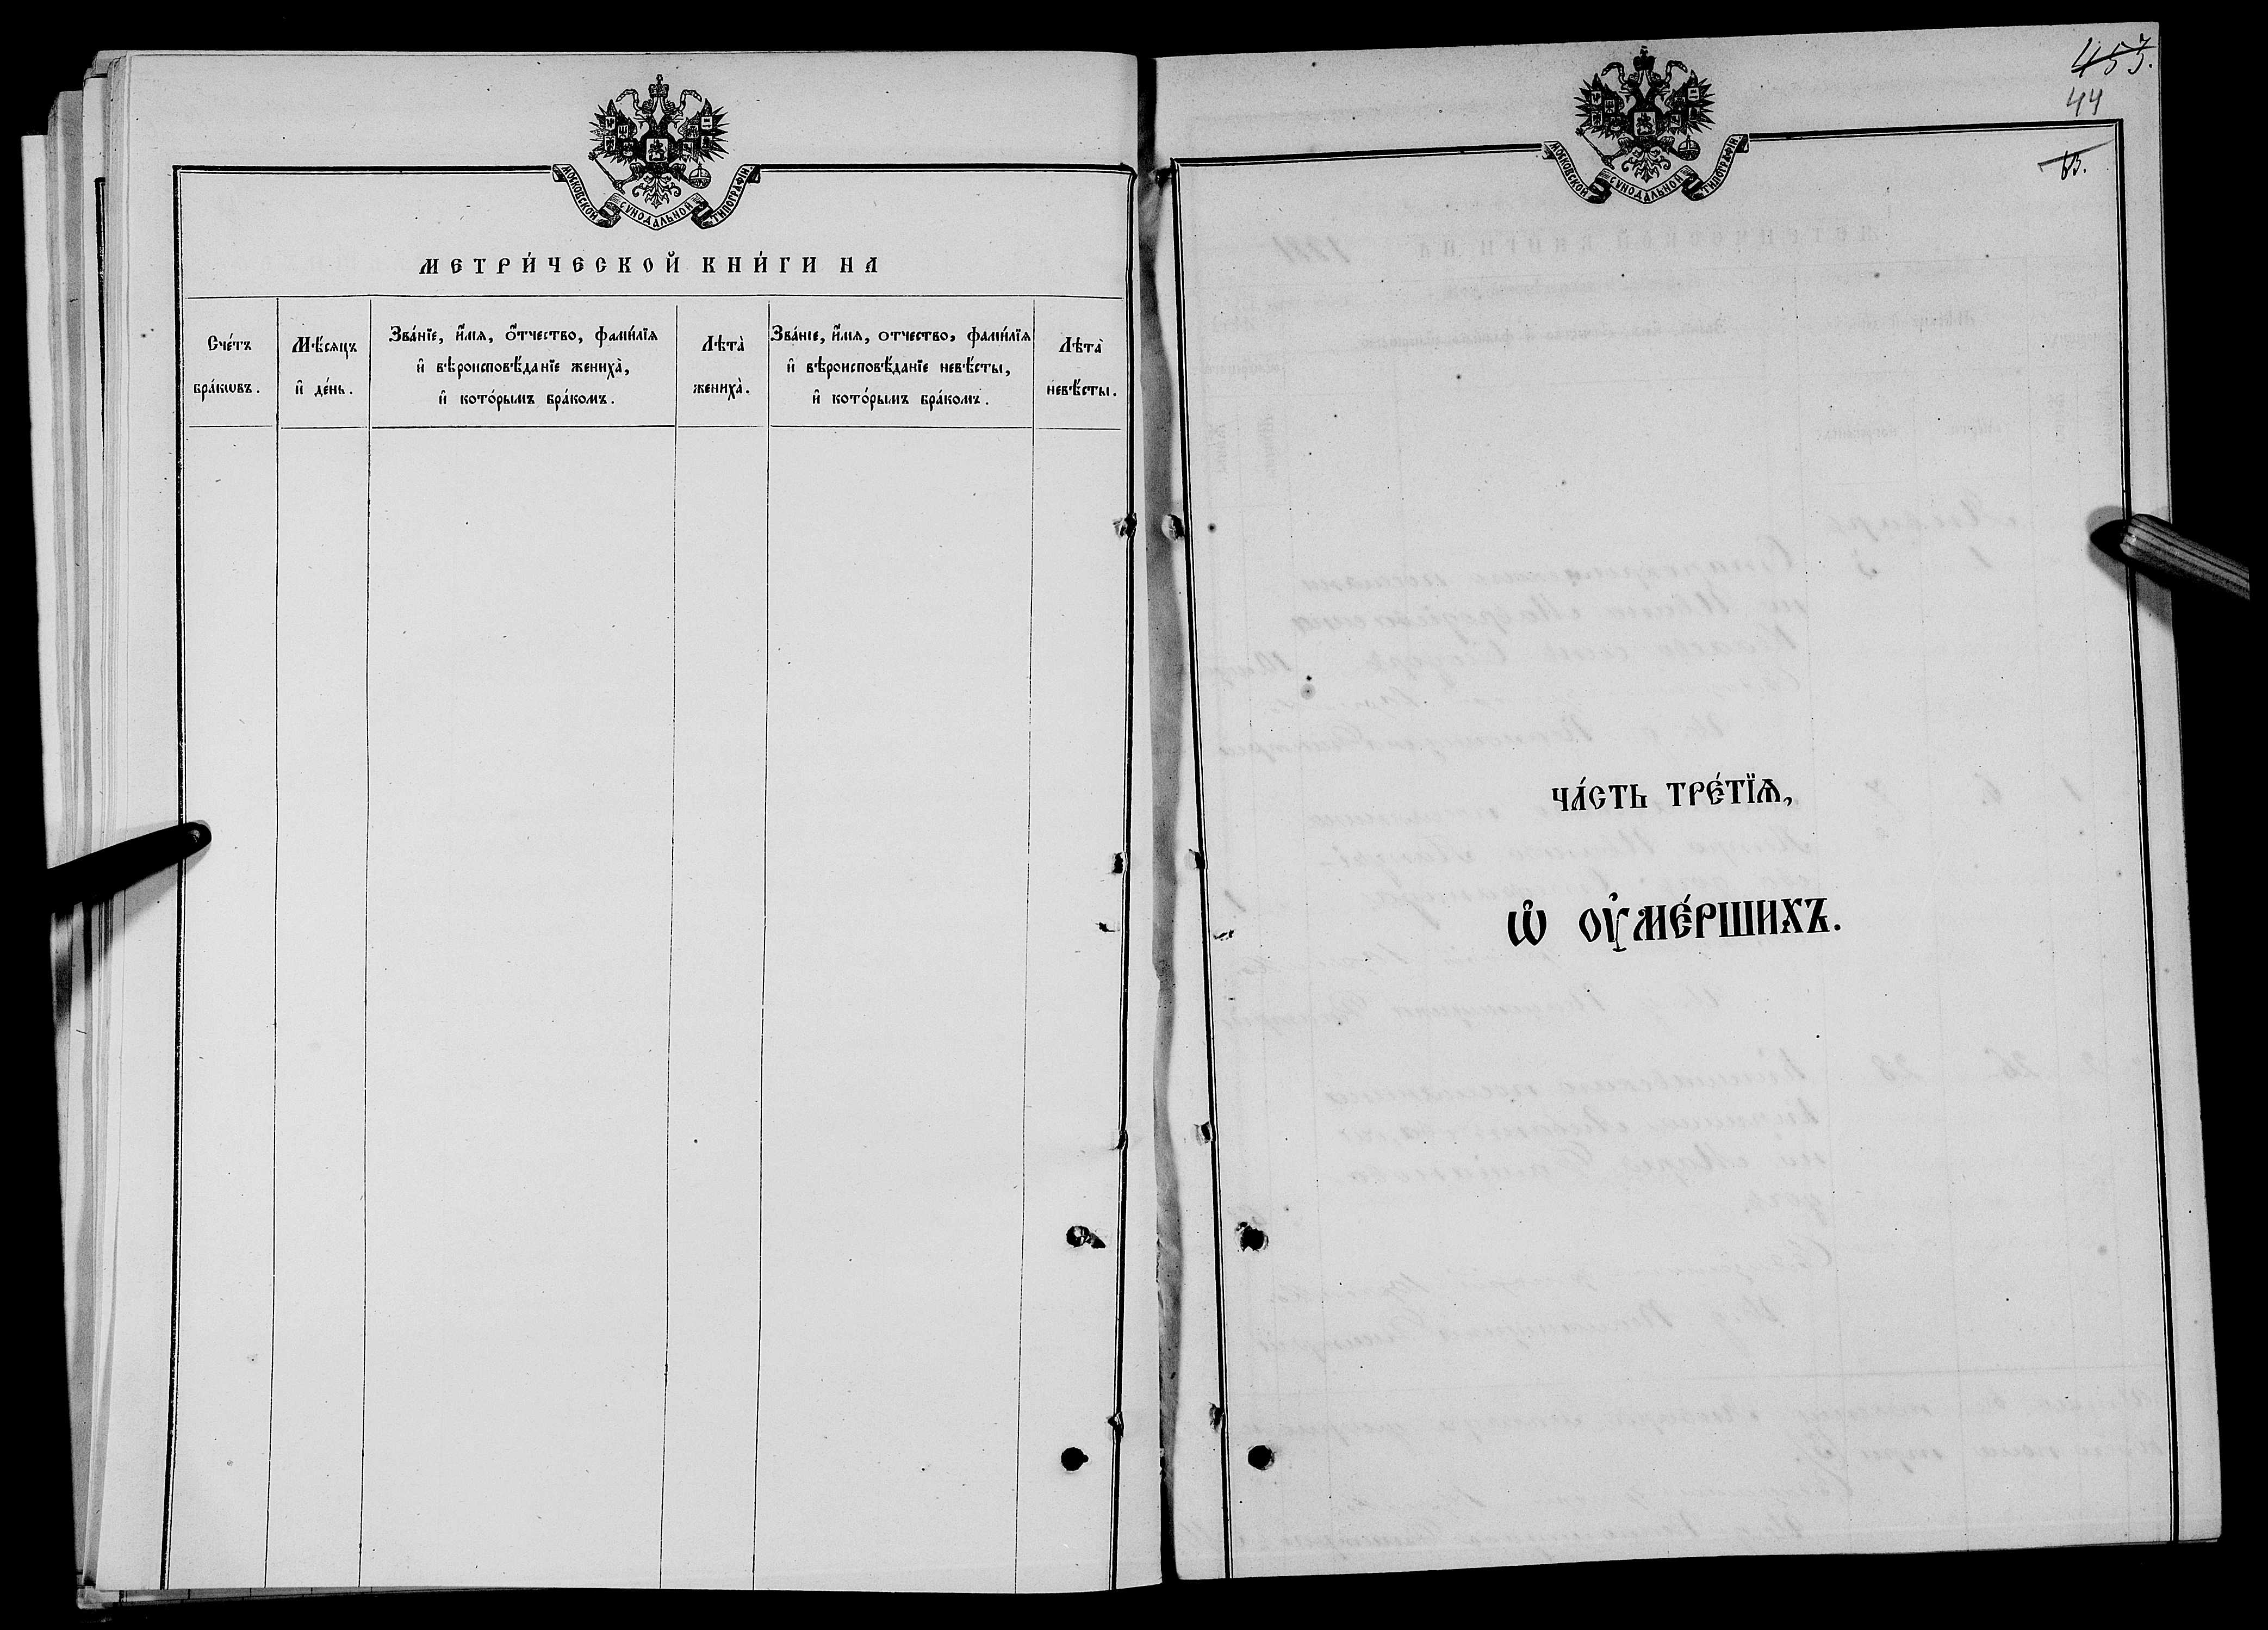 МОСКОВСКОЙ СѴНОДАЛЬНОЙ ТИПОГРАФІИ
МЕТРИ́ЧЕСКОЙ КНИ́ГИ НА
Сче́тъ
бра́кѡвъ.
Мѣ́сяцъ
и҆ де́нь.
Зва́нїе, и҆́мѧ, ѻ҆́тчество, фами́лїѧ
и҆ вѣроисповѣ́данїе жениха̀,
и҆ кото́рымъ бра́комъ.
Лѣта̀
жениха̀.
Зва́нїе, и҆́мѧ, отчество, фами́лїѧ
и҆ вѣроисповѣ́данїе невѣ́сты,
и҆ кото́рымъ бра́комъ.
Лѣта̀
невѣ́сты.
457.
44
МОСКОВСКОЙ СѴНОДАЛЬНОЙ ТИПОГРАФІИ
ЧА́СТЬ ТРЕ́ТЇѦ,
Ѡ҆ ОУ҆МЕ́РШИХЪ.